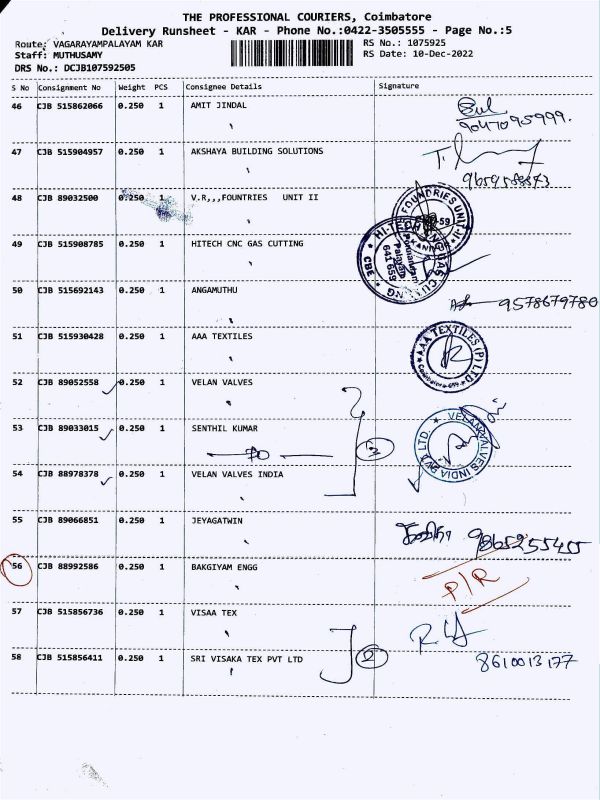 THE PROFESSIONAL COURIERS, Coimbatore
Delivery Runsheet - KAR - Phone No.:0422-3505555 - Page No.:5
Route: VAGARAYAMPALAYAM KAR RS No.: 1075925
Staff: MUTHUSAMY RS Date: 10-Dec-2022
DRS No.: DCJB107592505
S No Consignment No Weight PCS Consignee Details Signature
46 CJB 515862066 0.250 1 AMIT JINDAL
9047095999.
47 CJB 515904957 0.250 1 AKSHAYA BUILDING SOLUTIONS
48 CJB 89032500 0.250 1 V.R,,,FOUNTRIES UNIT II
FOUNDRIES UNIT-II
49 CJB 515908785 0.250 1 HITECH CNC GAS CUTTING
641 659
CBE
50 CJB 515692143 0.250 1 ANGAMUTHU
9578679780
51 CJB 515930428 0.250 1 AAA TEXTILES
AAA TEXTILES (P) LTD
52 CJB 89052558 0.250 1 VELAN VALVES
53 CJB 89033015 0.250 1 SENTHIL KUMAR
3
VELAN VALVES INDIA PVT LTD.
54 CJB 88978378 0.250 1 VELAN VALVES INDIA
55 CJB 89066851 0.250 1 JEYAGATWIN
56 CJB 88992586 0.250 1 BAKGIYAM ENGG
P/R
57 CJB 515856736 0.250 1 VISAA TEX
58 CJB 515856411 0.250 1 SRI VISAKA TEX PVT LTD
2
8610013177